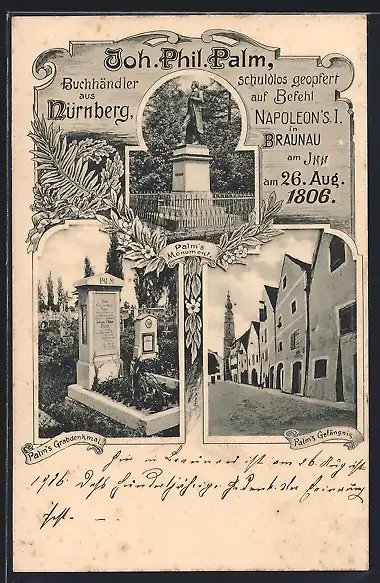 Joh. Phil. Palm,
Buchhändler
aus
Nürnberg,
schuldlos geopfert
auf Befehl
NAPOLEON'S. I.
in
BRAUNAU
am JNN
am 26. Aug.
1806.
Palm's
Monument.
PALM
Palm's Grabdenkmal.
Palm's Gefängnis.
Hier in Braunau ist am 26. August
Das Hundertjährige
fest. —